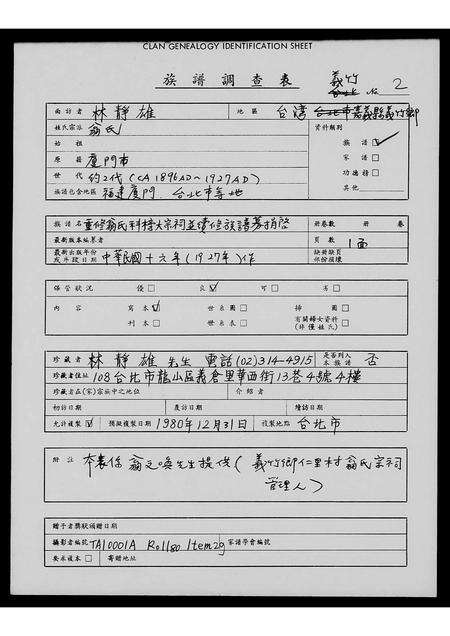 CLAN GENEALOGY IDENTIFICATION SHEET
族譜調查表 義竹 No 2
面訪者 林靜雄 地區 台灣 台北市嘉義縣義竹鄉
姓氏宗派 翁氏 資料類別
始祖 族譜 ✓
原籍 廈門市 家譜 □
世代 約2代(CA 1896AD~1927AD) 功德榜 □
族譜包含地區 福建廈門、台北市等地 其他
族譜名 重修翁氏科榜大宗祠並續修族譜募捐啓 冊卷數 冊 卷
最新版本編纂者 頁數 1面
最新出版年份或手段日期 中華民國十六年(1927年)作 缺冊缺頁部份損壞
保管狀況 優□ 良☑ 可□ 劣□
內容 寫本☑ 世系圖□ 掃圖□
刊本□ 世系表□ 有關婦女資料(非僅姓氏)□
珍藏者 林靜雄先生 電話(02)314-4915 是否列入本族譜 否
珍藏者住址 108台北市龍山區義倉里華西街13巷4號4樓
珍藏者在(家)宗族中之地位 介紹者
初訪日期 度訪日期 續訪日期
允許複製 ☑ 擬縮複製日期 1980年12月31日 複製地點 台北市
附註 本表係翁 先生提供(義竹鄉仁里村翁氏宗祠
管理人)
贈予者獎狀頒贈日期
攝影者編號 TA10001A Roll80 Item29 家譜學會編號
要承複本□ 寄贈地址